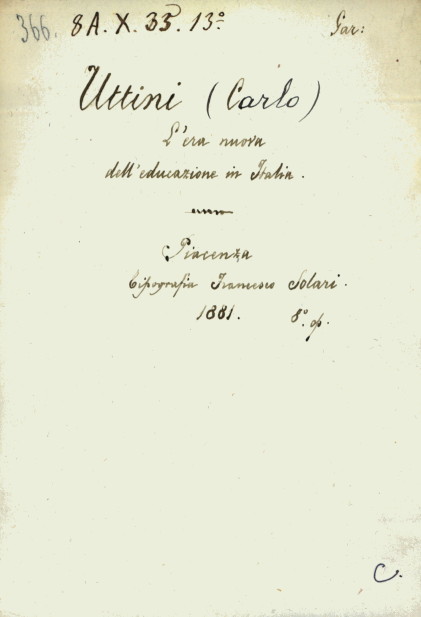 366. 8A. X. 35. 13º Gar:
Uttini (Carlo)
L'era nuova
dell'educazione in Italia.
Piacenza
Tipografia Francesco Solari.
1881. 8º. op.
C.